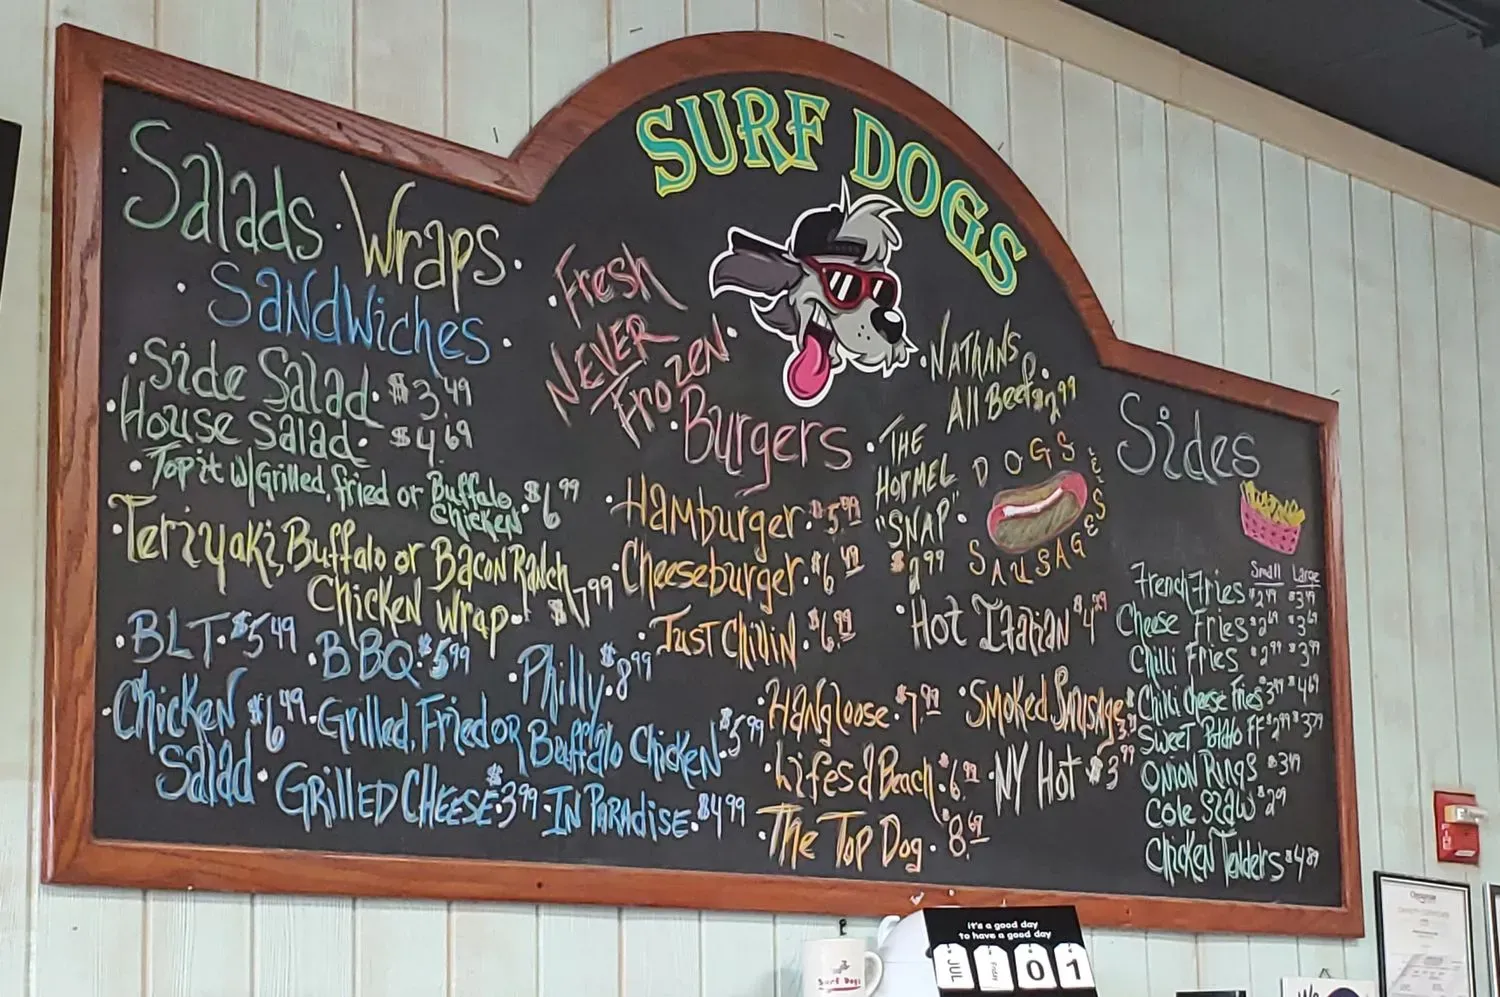 SURF DOGS
Salads · Wraps
· Sandwiches ·
· Side Salad · $3.49
· House Salad · $4.69
· Top it w/Grilled, fried or Buffalo Chicken $6.99
· Teriyaki, Buffalo or Bacon Ranch
Chicken Wrap · $7.99
· BLT · $5.49
· BBQ · $5.99
· Philly · $8.99
· Chicken Salad · $6.49
· Grilled, Fried or Buffalo Chicken · $5.99
· GRILLED CHEESE · $3.99
· IN PARADISE · $4.99
· Fresh
NEVER
Frozen ·
· Burgers
· Hamburger · $5.49
· Cheeseburger · $6.49
· JUST CHILLIN · $6.99
· Hangloose · $7.99
· Lifes a Beach · $6.99
· The Top Dog · $8.69
· NATHANS
All Beef · $2.99
· THE
HORMEL
"SNAP" ·
$2.99
DOGS
&
SAUSAGES
· Hot Italian $4.29
· Smoked Sausage
· NY Hot $3.99
Sides
Small Large
French Fries $2.49 $3.49
Cheese Fries $2.69 $3.69
Chilli Fries $2.99 $3.99
Chilli Cheese Fries $3.49 $4.69
Sweet Potato FF $2.99 $3.79
Onion Rings $3.49
Cole Slaw $2.09
Chicken Tenders $4.89
it's a good day
to have a good day
JUL Friday 0 1
Surf Dogs